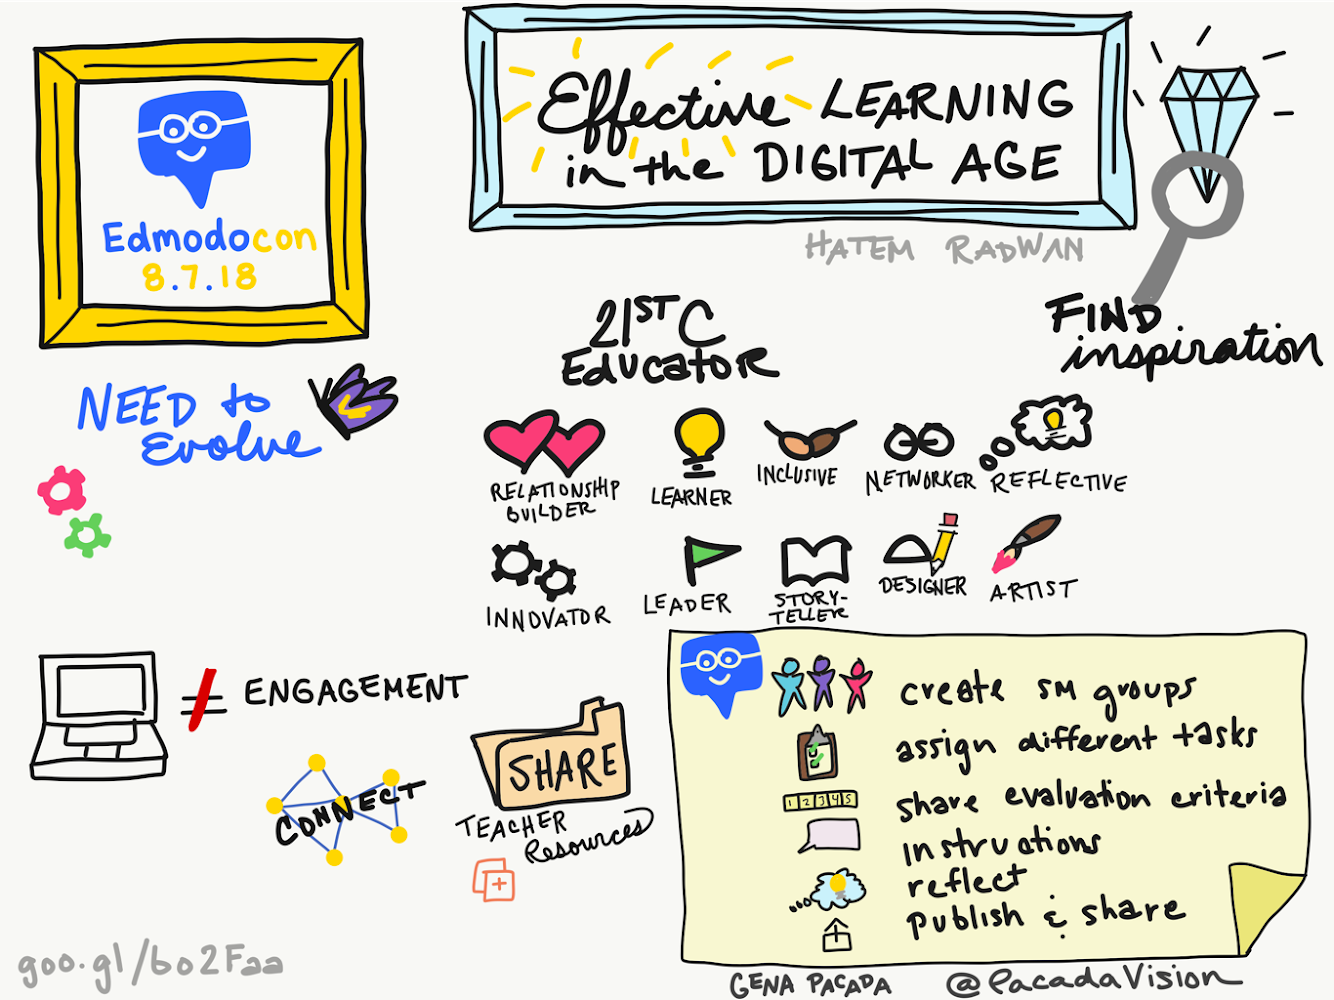 Edmodocon
8.7.18
Effective LEARNING
in the DIGITAL AGE
HATEM RADWAN
FIND
inspiration
NEED to
Evolve
21ST C
Educator
RELATIONSHIP
BUILDER
LEARNER
INCLUSIVE
NETWORKER
REFLECTIVE
INNOVATOR
LEADER
STORY-
TELLER
DESIGNER
ARTIST
≠ ENGAGEMENT
CONNECT
SHARE
TEACHER
Resources
create sm groups
assign different tasks
1 2 3 4 5
share evaluation criteria
instructions
reflect
publish & share
goo.gl/bo2Faa
GENA PACADA @PacadaVision